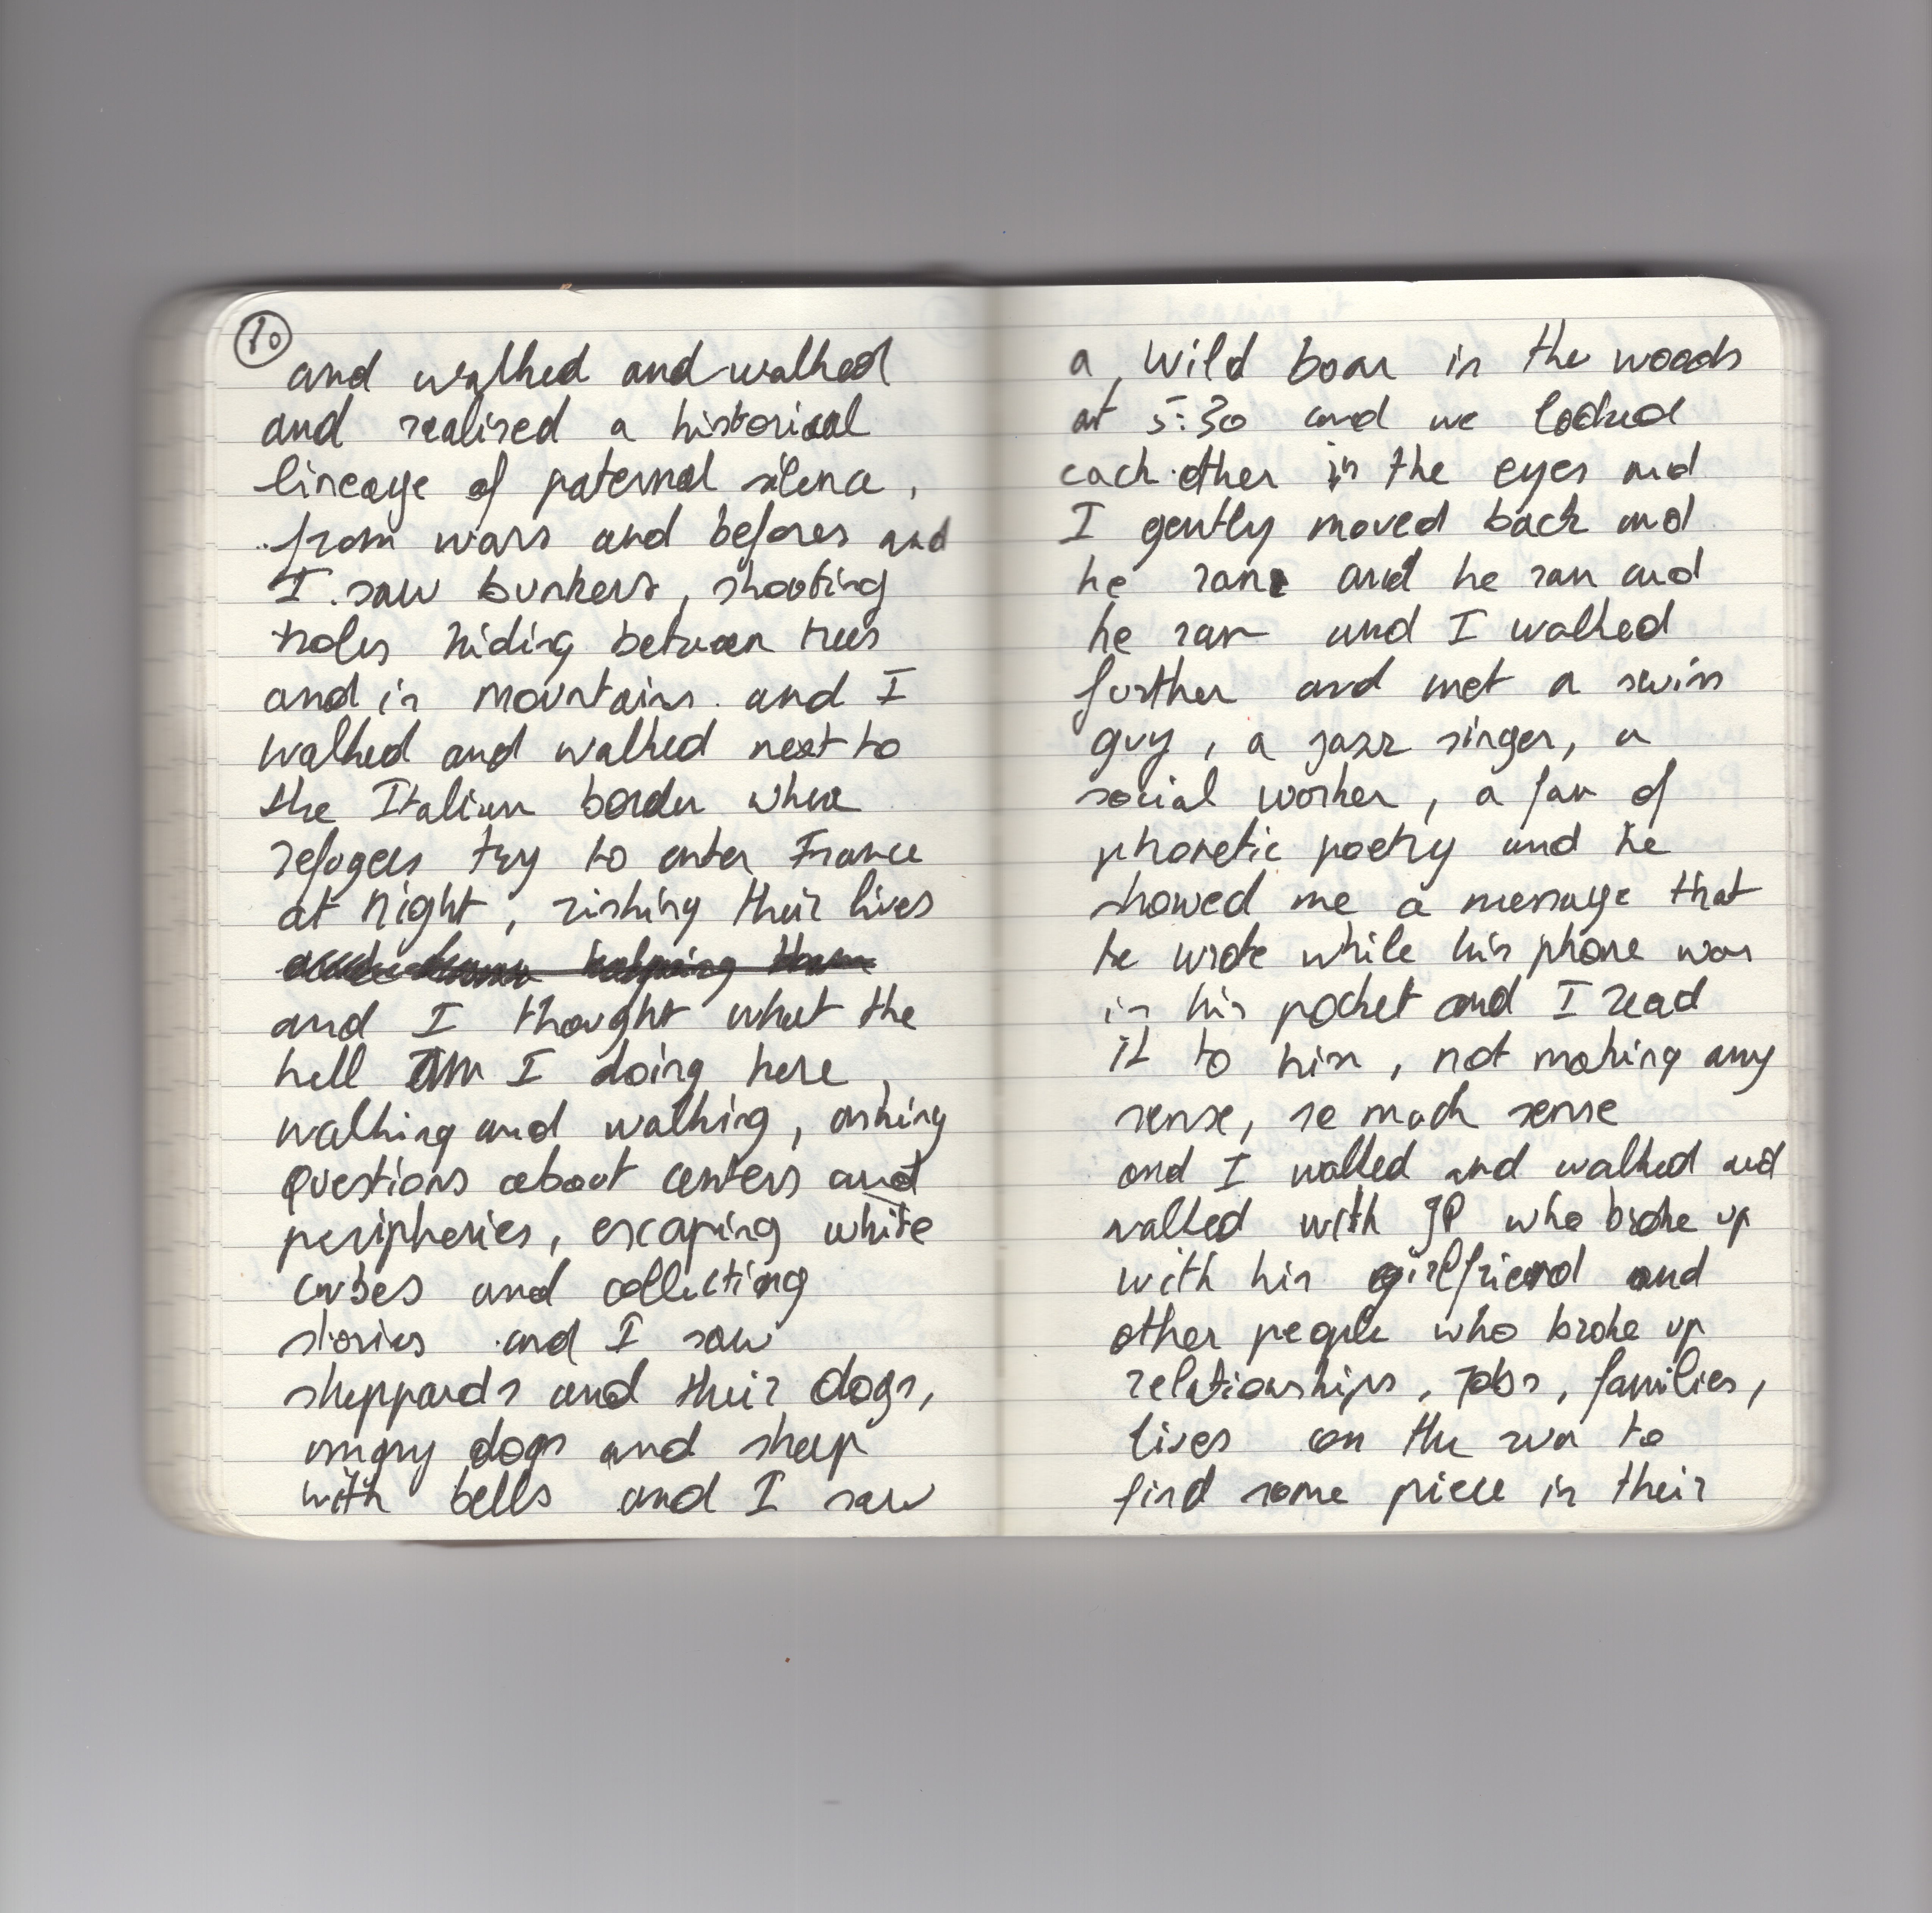 10
and walked and walked
and realised a historical
lineage of paternal silence,
from wars and befores and
I saw bunkers, shooting
holes hiding between trees
and in mountains and I
walked and walked next to
the Italian border where
refugees try to enter France
at night, risking their lives
helping them
and I thought what the
hell am I doing here,
walking and walking, asking
questions about centers and
peripheries, escaping white
cubes and collecting
stories and I saw
sheppards and their dogs,
angry dogs and sheep
with bells and I saw
a wild boar in the woods
at 5:30 and we looked
each other in the eyes and
I gently moved back and
he ran and he ran and
he ran and I walked
further and met a swiss
guy, a jazz singer, a
social worker, a fan of
phonetic poetry and he
showed me a message that
he wrote while his phone was
in his pocket and I read
it to him, not making any
sense, so much sense
and I walked and walked and
walked with JP who broke up
with his girlfriend and
other people who broke up
relationships, jobs, families,
lives on the run to
find some piece in their